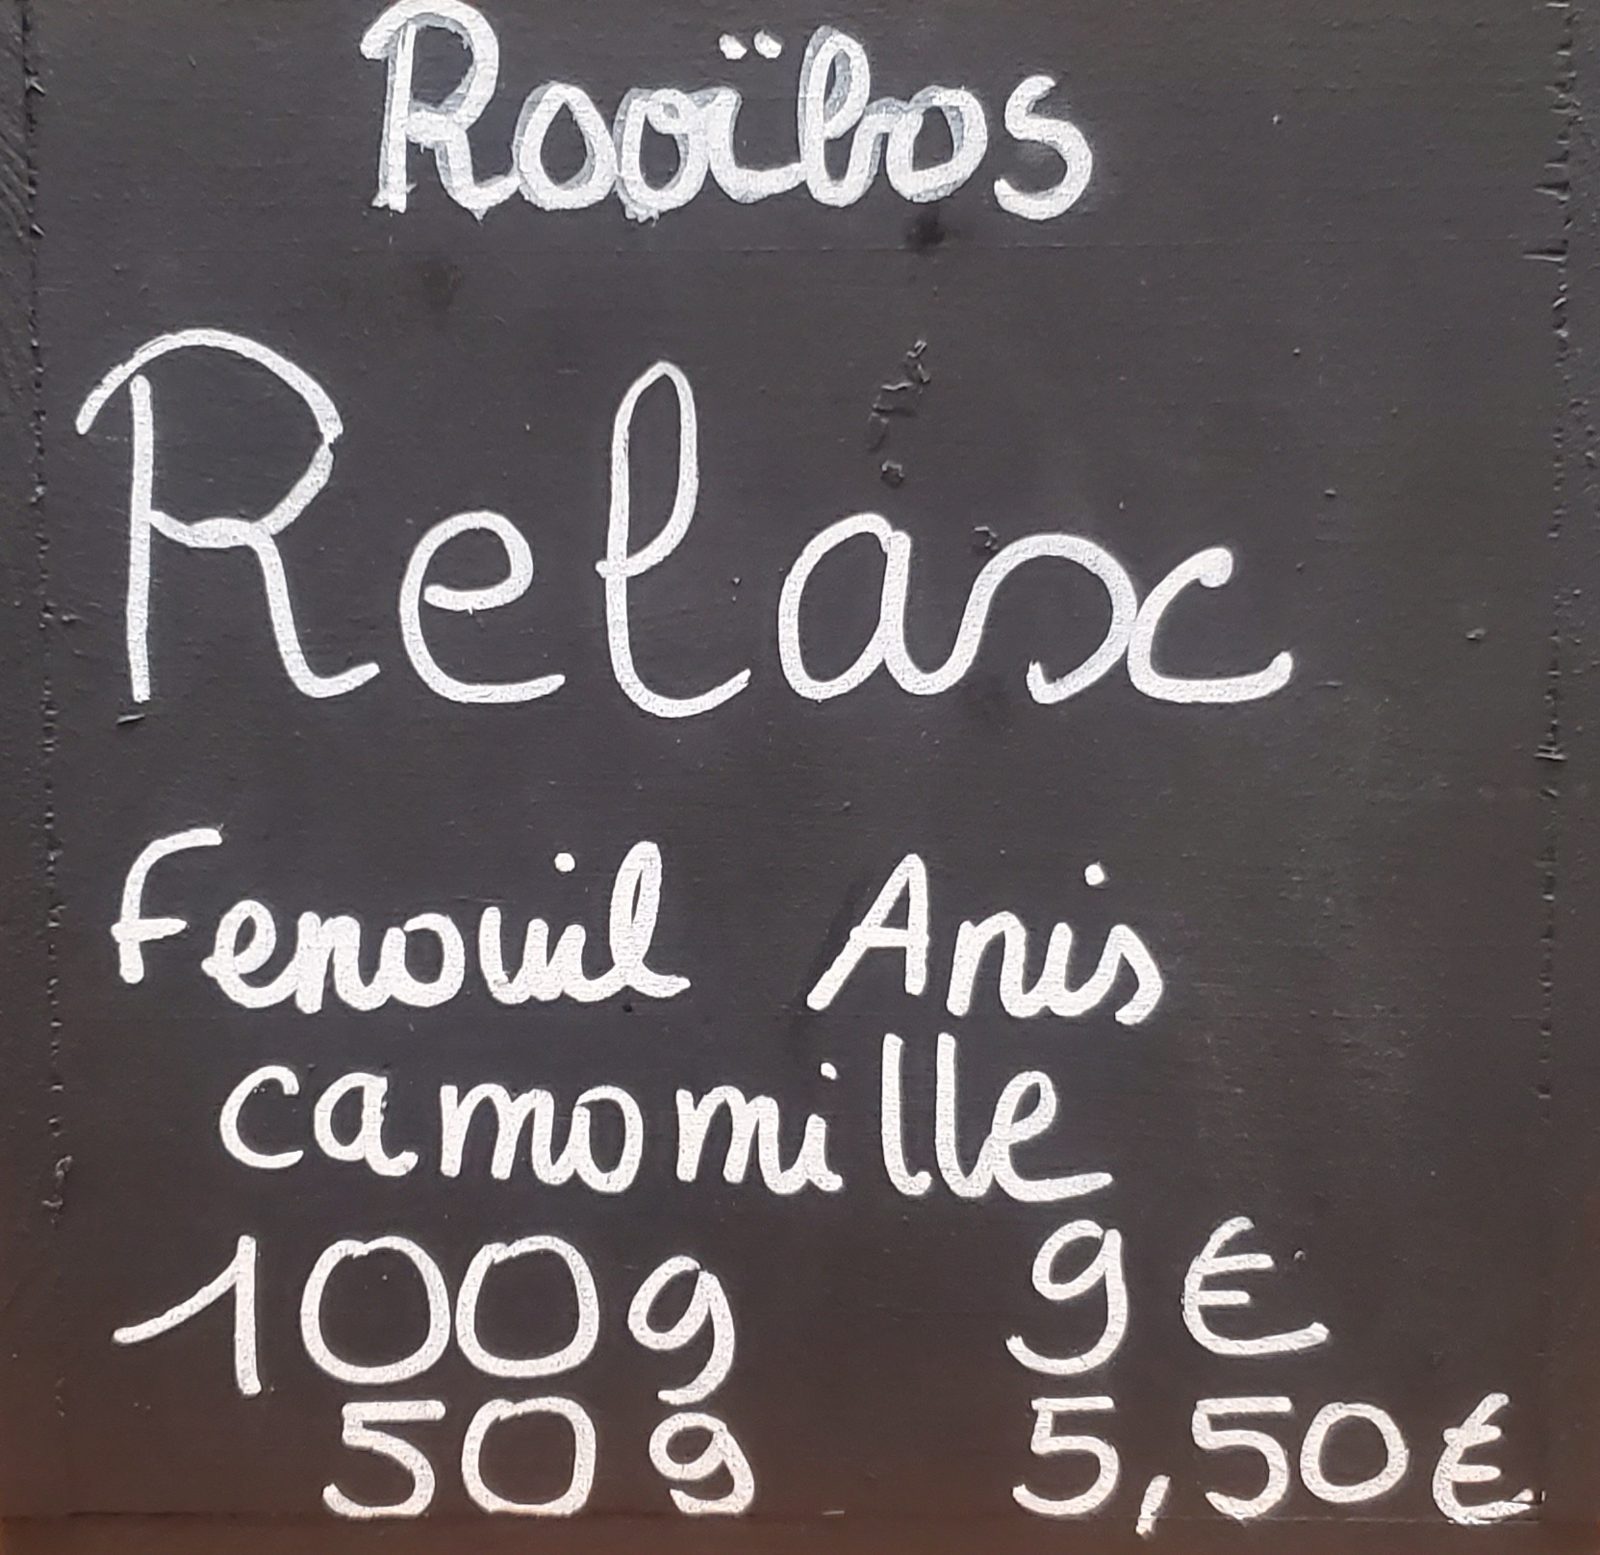 Rooïbos
Relax
Fenouil Anis
camomille
100g 9€
50g 5,50€